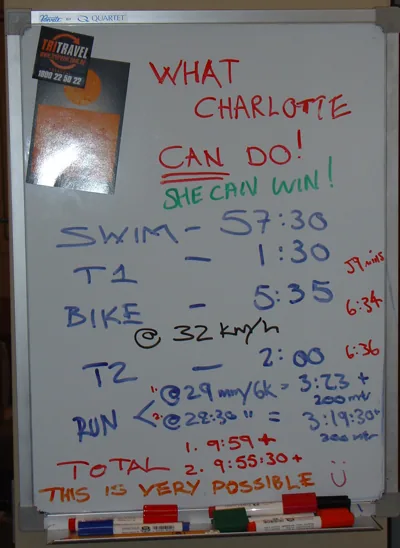 QUARTET
TRITRAVEL
1800 22 50 22
WHAT
CHARLOTTE
CAN DO!
SHE CAN WIN!
SWIM - 57:30
T1 - 1:30
59 mins
BIKE - 5:35
6:34
@ 32 km/h
T2 - 2:00
6:36
1. @ 29 min/6k = 3:23 +
200 mtr
RUN <
2. @ 28:30 " = 3:19:30+
200 mtr
TOTAL 1. 9:59 +
2. 9:55:30 +
THIS IS VERY POSSIBLE